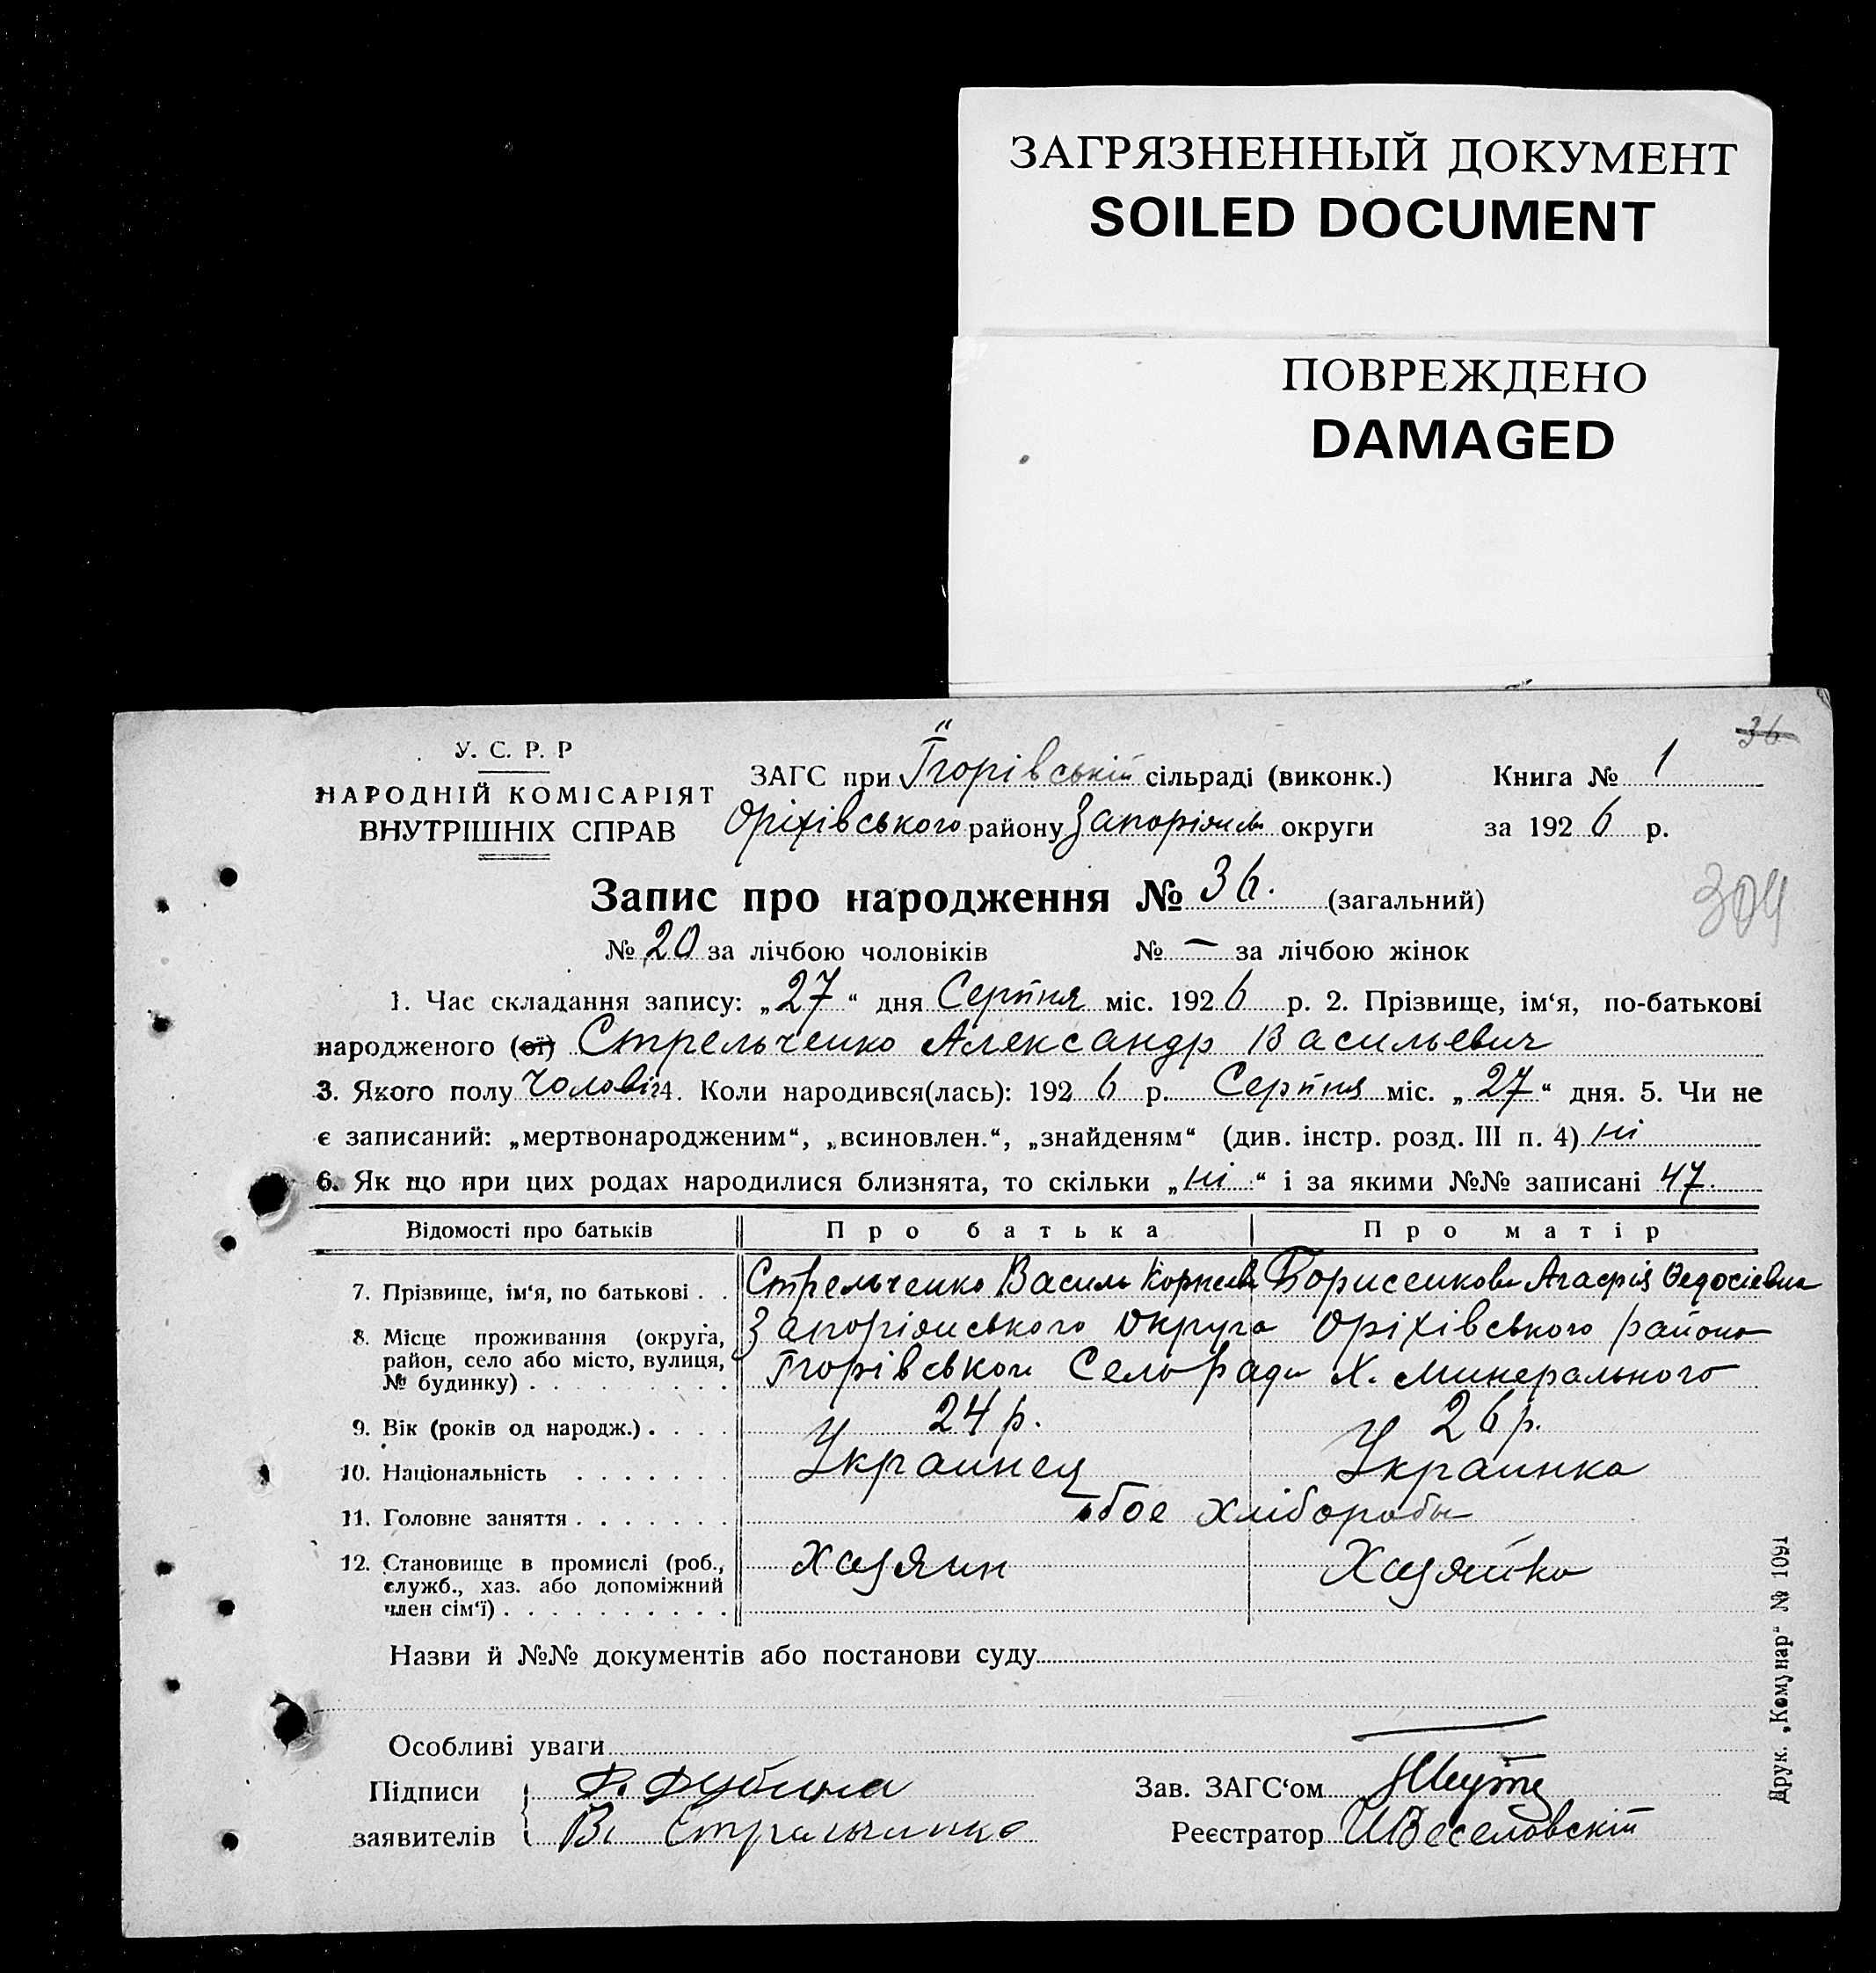 ЗАГРЯЗНЕННЫЙ ДОКУМЕНТ
SOILED DOCUMENT
ПОВРЕЖДЕНО
DAMAGED
36
У. С. Р. Р
НАРОДНІЙ КОМІСАРІЯТ
ВНУТРІШНІХ СПРАВ
ЗАГС при Ігорівській сільраді (виконк.) Книга № 1
Оріхівського району округи за 192 6 р.
Запис про народження № 36. (загальний)
304
№ 20 за лічбою чоловіків № — за лічбою жінок
1. Час складання запису: „27“ дня Серпня міс. 192 6 р. 2. Прізвище, ім‘я, по-батькові
народженого (ої) Стрельченко Александр Васильевич
3. Якого полу Чоловіч 4. Коли народився(лась): 192 6 р. Серпня міс. „27“ дня. 5. Чи не
є записаний: „мертвонародженим“, „всиновлен.“, „знайденям“ (див. інстр. розд. III п. 4) ні
6. Як що при цих родах народилися близнята, то скільки „ні“ і за якими №№ записані 47.
Відомості про батьків Про батька Про матір
7. Прізвище, ім‘я, по батькові . . Стрельченко Василь Корнеев Борисенкова Агафія Федосіевна
8. Місце проживання (округа, Запоріжського Округа Оріхівського району
район, село або місто, вулиця, Ігорівськои Селоради Х. Минерального
№ будинку) . . . . . . . . .
9. Вік (років од народж.) . . . . 24 р. 26 р.
10. Національність . . . . . . . Украинец Украинка
11. Головне заняття . . . . . . . обое хлібороби
12. Становище в промислі (роб., Хазяин Хазяйка
служб., хаз. або допоміжний
член сім‘ї) . . . . . . . . . .
Назви й №№ документів або постанови суду
Особливі уваги
Підписи Зав. ЗАГС‘ом
заявителів В. Стрельченко Реєстратор Веселовскій
Друк. „Комунар“ № 1091